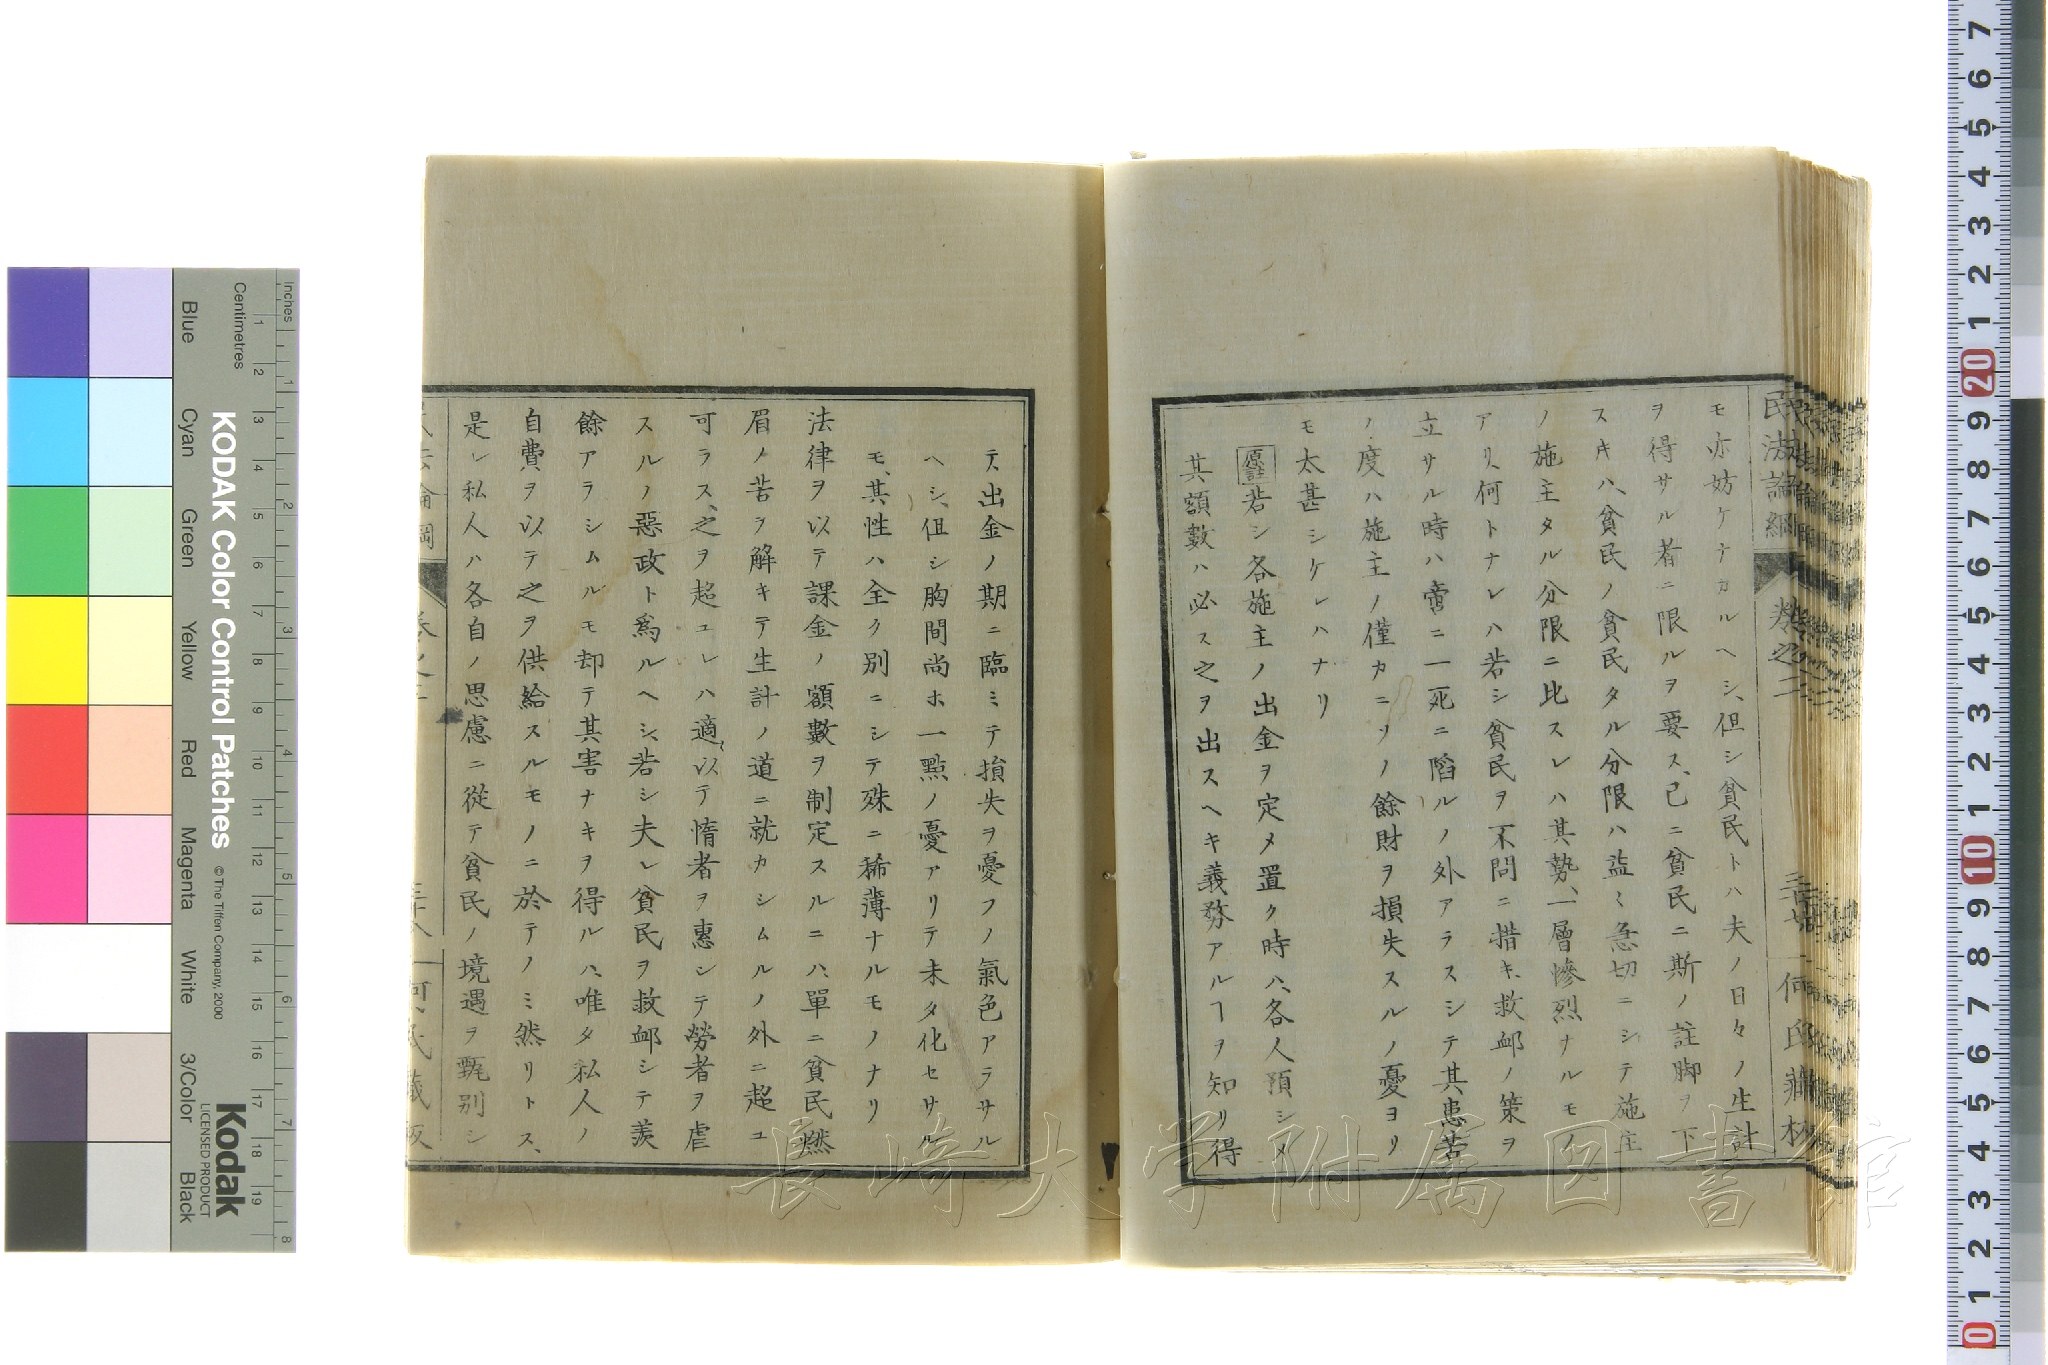 民法論綱
卷之二
三十七
何氏藏板
モ亦妨ケナカルヘシ、但シ貧民トハ夫ノ日々ノ生計
ヲ得サル者ニ限ルヲ要ス、已ニ貧民ニ斯ノ註脚ヲ下
スキハ、貧民ノ貧民タル分限ハ益〻急切ニシテ施主
ノ施主タル分限ニ比スレハ其勢、一層慘烈ナルモノ
アリ、何トナレハ若シ貧民ヲ不問ニ措キ、救卹ノ策ヲ
立サル時ハ啻ニ一死ニ陷ルノ外アラスシテ其患苦
ノ度ハ施主ノ僅カニソノ餘財ヲ損失スルノ憂ヨリ
モ太甚シケレハナリ
原註若シ各施主ノ出金ヲ定メ置ク時ハ、各人預シメ
其額數ハ必ス之ヲ出スヘキ義務アルヿヲ知リ得
テ出金ノ期ニ臨ミテ損失ヲ憂フノ氣色アラサル
ヘシ、但シ胸間尚ホ一點ノ憂アリテ未タ化セサル
モ、其性ハ全ク別ニシテ殊ニ稀薄ナルモノナリ
法律ヲ以テ課金ノ額數ヲ制定スルニハ、單ニ貧民燃
眉ノ苦ヲ解キテ生計ノ道ニ就カシムルノ外ニ超ユ
可ラス、之ヲ超ユレハ適以テ惰者ヲ惠シテ勞者ヲ虐
スルノ惡政ト爲ルヘシ、若シ夫レ貧民ヲ救卹シテ羨
餘アラシムルモ却テ其害ナキヲ得ルハ、唯タ私人ノ
自費ヲ以テ之ヲ供給スルモノニ於テノミ然リトス、
是レ私人ハ各自ノ思慮ニ從テ貧民ノ境遇ヲ甄別シ
長崎大学附属図書館
KODAK Color Control Patches
© The Tiffen Company, 2000
Kodak
LICENSED PRODUCT
Inches
Centimetres
Blue
Cyan
Green
Yellow
Red
Magenta
White
3/Color
Black